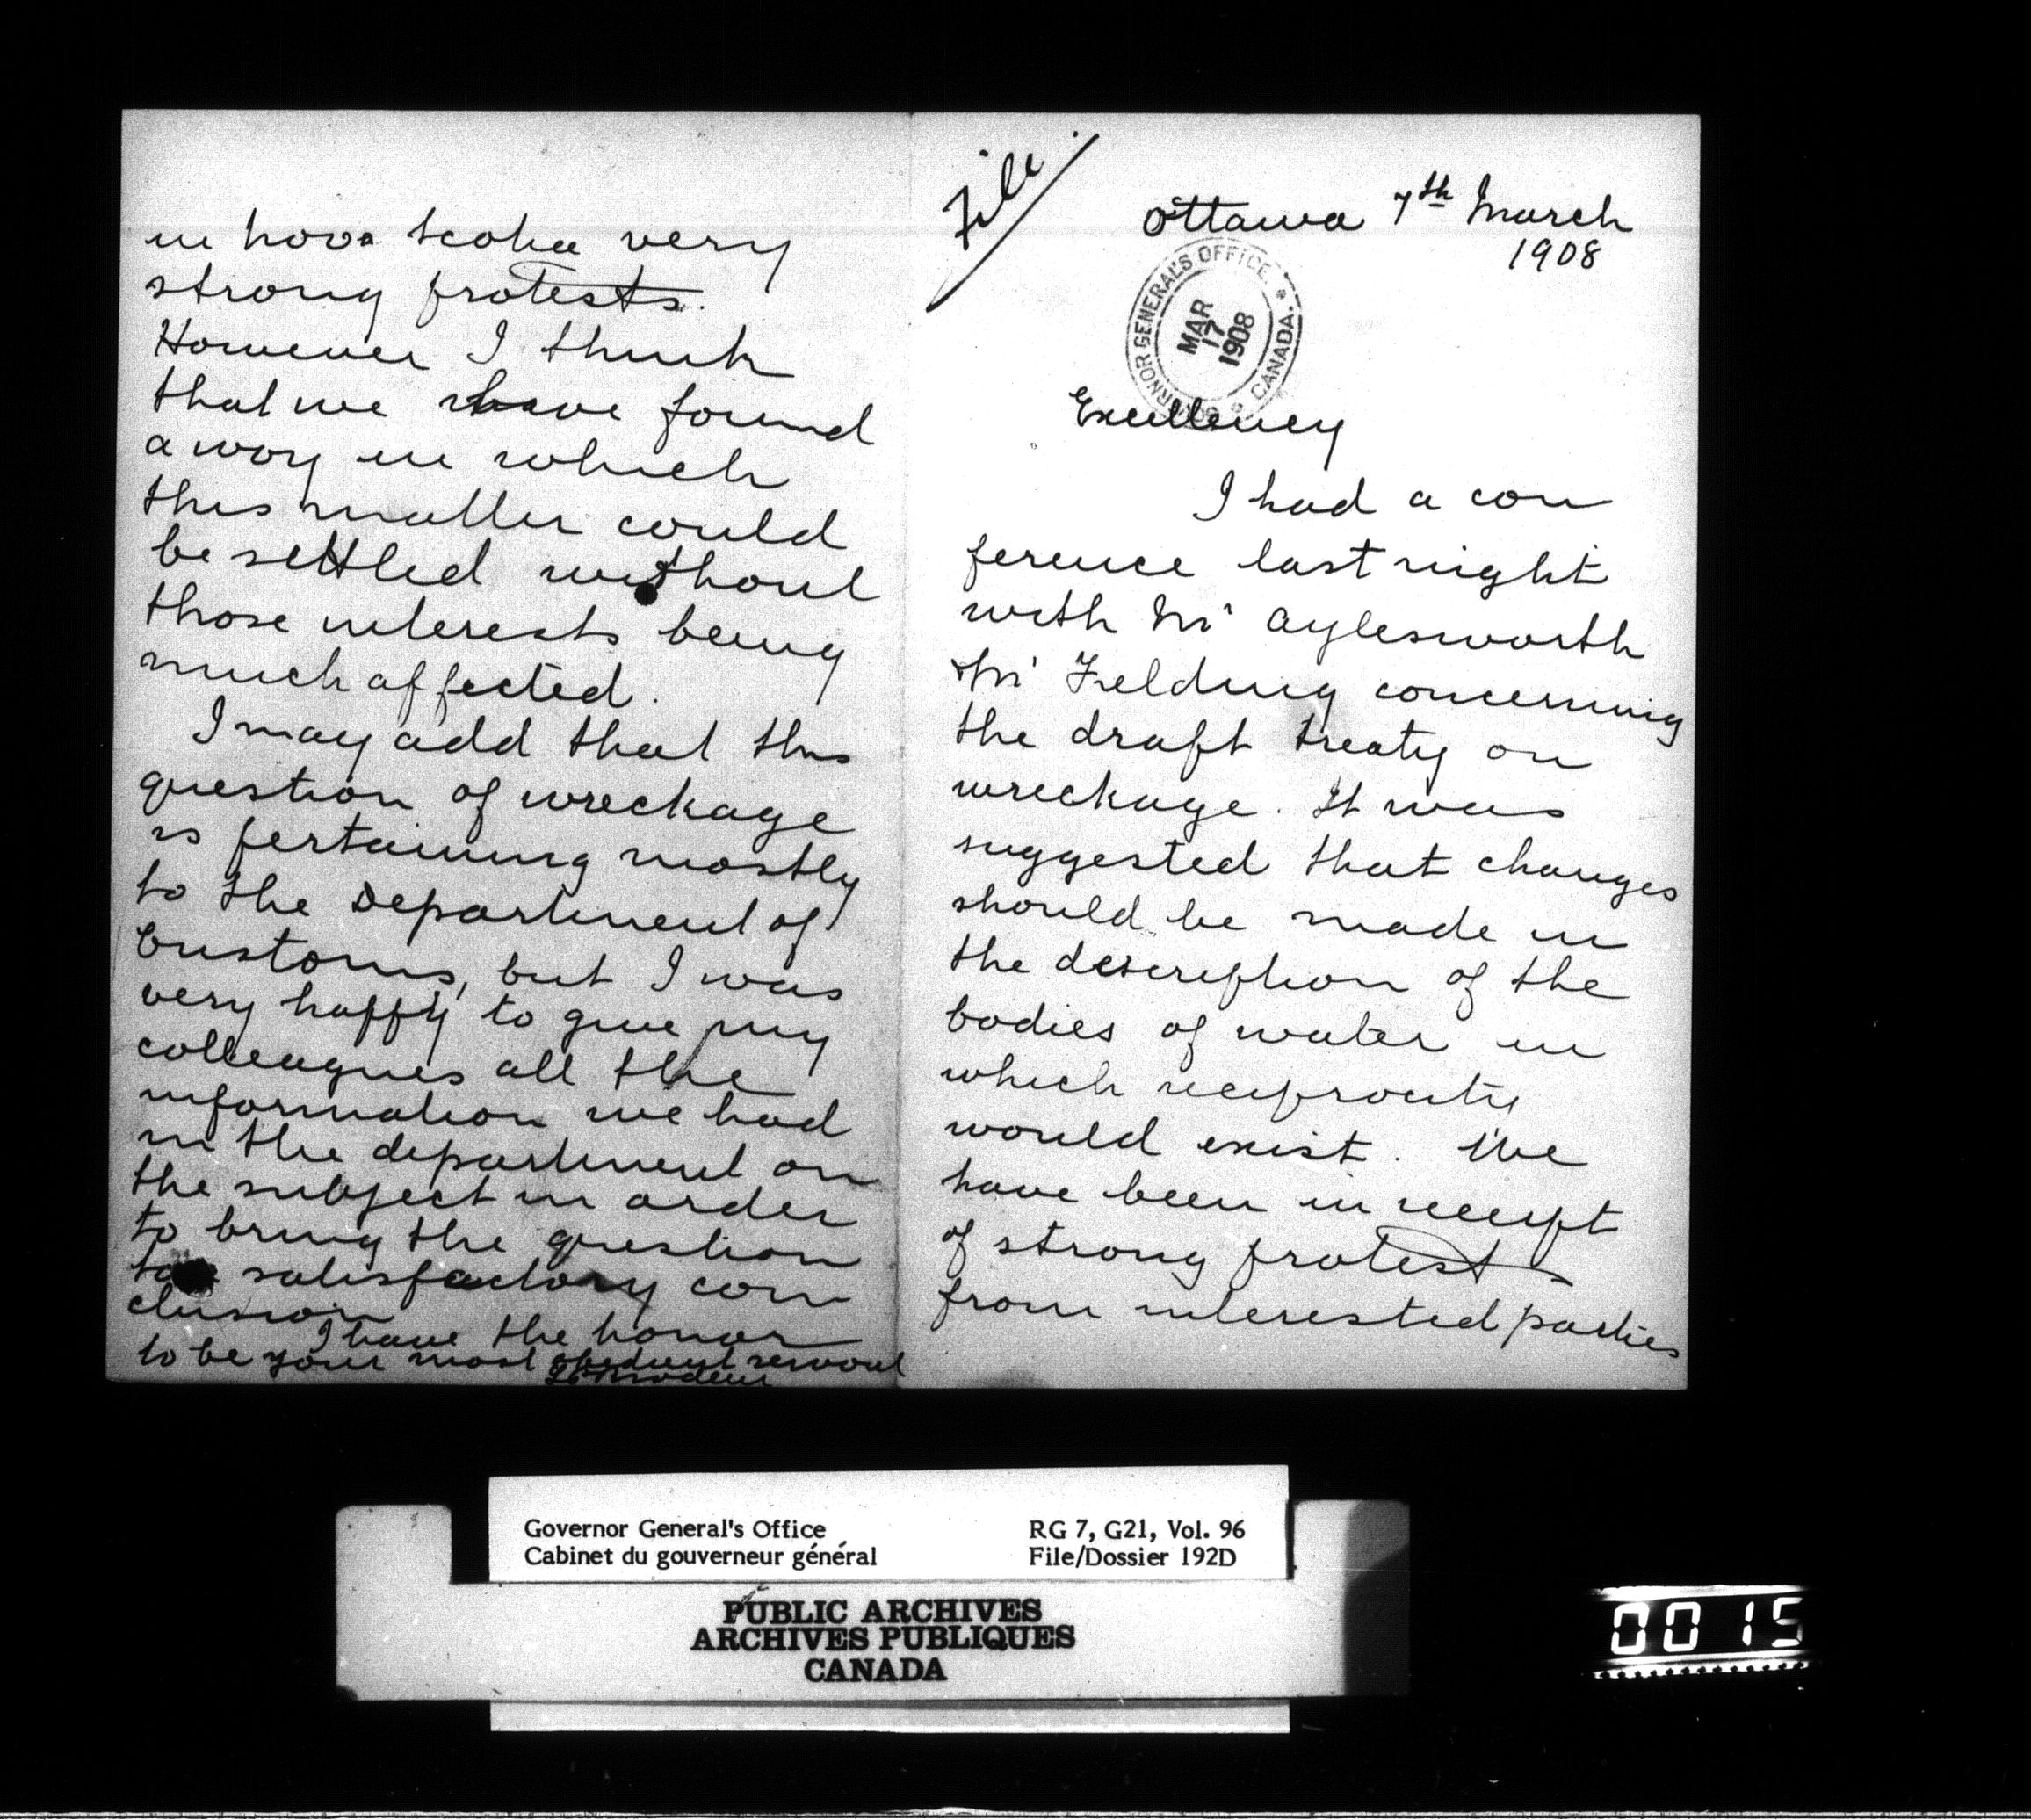 File
Ottawa 7th March
1908
GOVERNOR GENERAL'S OFFICE. * CANADA. *
MAR
17
1908
Excellency
I had a con
ference last night
with Mr Aylesworth
& Mr Fielding concerning
the draft treaty on
wreckage. It was
suggested that changes
should be made in
the description of the
bodies of water in
which reciprocity
would exist. We
have been in receipt
of strong protests
from interested parties
in Nova Scotia very
strong protests.
However I think
that we have found
a way in which
this matter could
be settled without
those interests being
much affected.
I may add that this
question of wreckage
is pertaining mostly
to the Department of
Customs, but I was
very happy to give my
colleagues all the
information we had
in the department on
the subject in order
to bring the question
to a satisfactory con
clusion
I have the honor
to be your most obedient servant
LP Brodeur
Governor General's Office
Cabinet du gouverneur général
RG 7, G21, Vol. 96
File/Dossier 192D
PUBLIC ARCHIVES
ARCHIVES PUBLIQUES
CANADA
0015